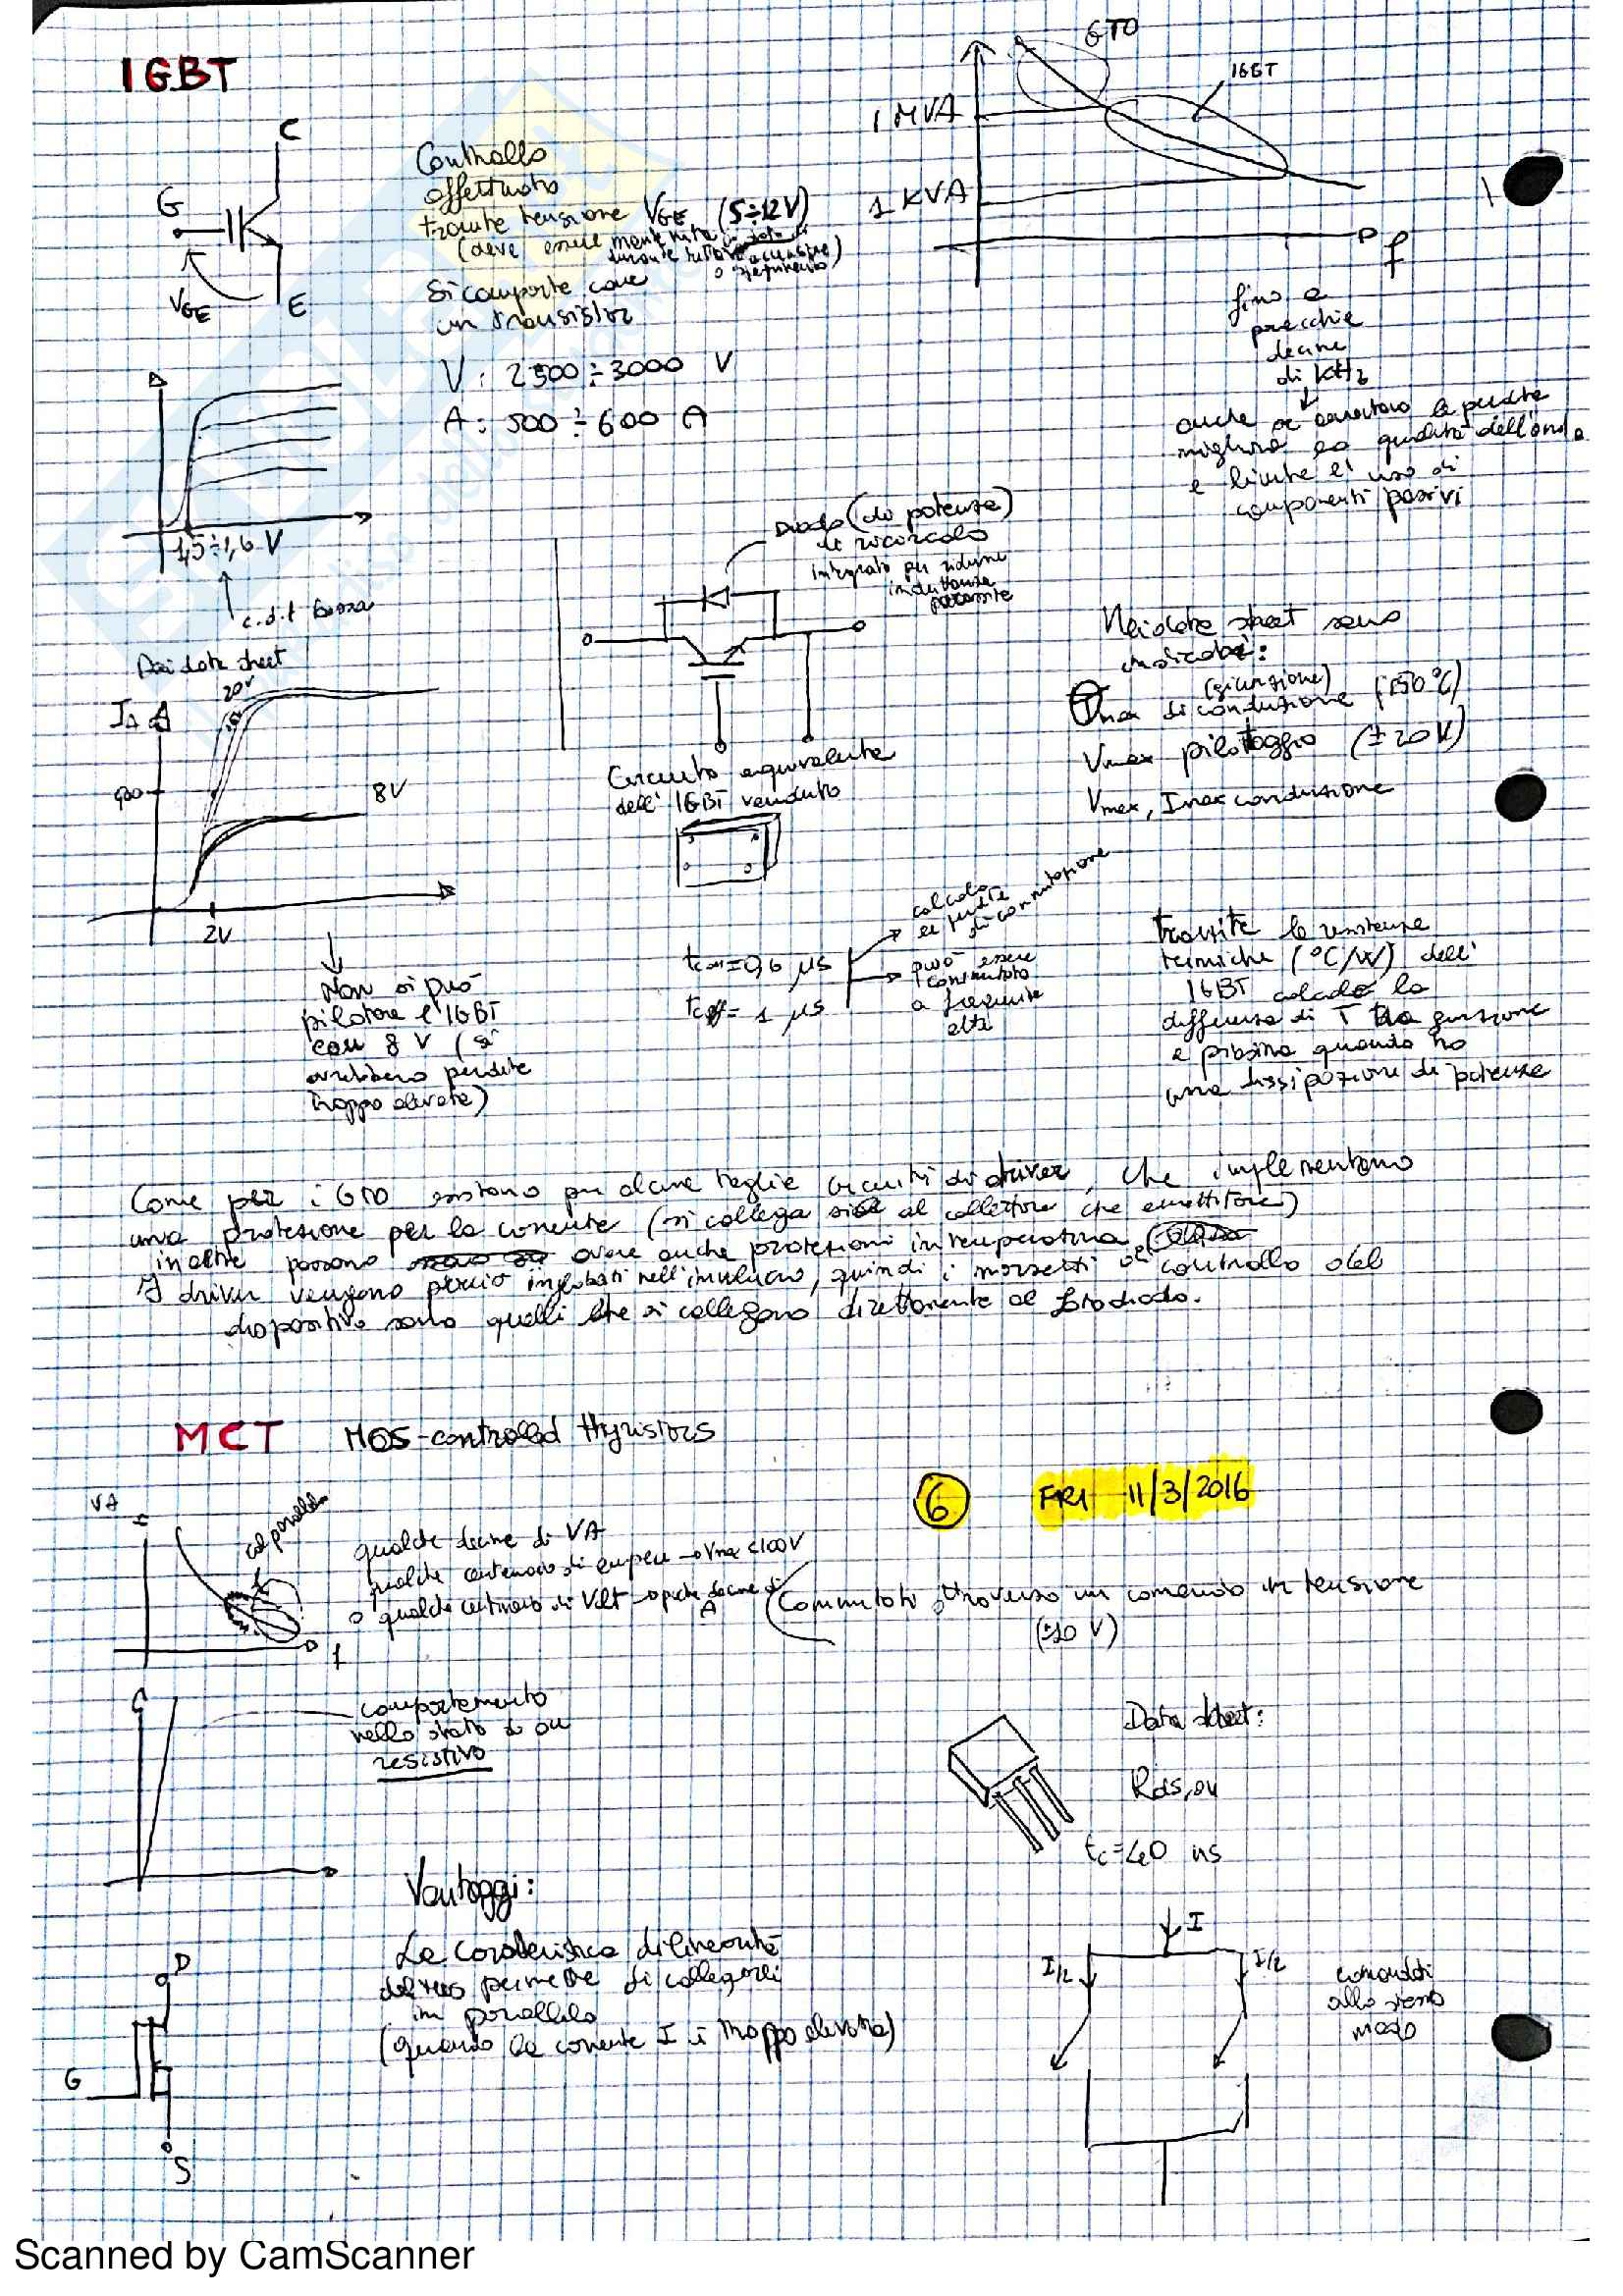 IGBT
C
G
VGE
E
Controllo
effettuato
tramite tensione VGE (5÷12V)
(deve essere mantenuta
durante tutta
o spegnimento)
Si comporta come
un transistor
V: 2500÷3000 V
A: 500÷600 A
GTO
IGBT
1 MVA
1 KVA
f
fino a
parecchie
decine
di kHz
anche se aumentano le perdite
migliora la qualità dell'onda
e limita l'uso di
componenti passivi
1,5÷1,6 V
c.d.t bassa
Dai data sheet
20V
15V
IA
900
8V
2V
Non si può
pilotare l'IGBT
con 8 V (si
avrebbero perdite
troppo elevate)
Diodo (di potenza)
di ricircolo
integrato per ridurre
induttanze
parassite
Circuito equivalente
dell'IGBT venduto
Nei data sheet sono
indicate:
(giunzione)
Θmax di conduzione (150°C)
Vmax pilotaggio (±20V)
Vmax, Imax conduzione
ton=0,6 μs
toff= 1 μs
calcolo
le perdite
di commutazione
può essere
commutato
a frequenze
alte
Tramite le resistenze
termiche (°C/W) dell'
IGBT calcolo la
differenza di T tra giunzione
e piastra quando ho
una dissipazione di potenza
Come per i GTO esistono per alcune taglie circuiti di driver, che implementano
una protezione per la corrente (si collega sia al collettore che emettitore)
inoltre possono avere anche protezioni in temperatura
I driver vengono perciò inglobati nell'involucro, quindi i morsetti di controllo del
dispositivo sono quelli che si collegano direttamente al fotodiodo.
MCT MOS-controlled thyristors
6 FRI 11/3/2016
VA
col parallelo
f
qualche decina di VA
qualche centinaio di ampere → Vmax <100V
o qualche centinaio di Volt → poche decine di
A
Commutati attraverso un comando in tensione
(±10 V)
comportamento
nello stato di on
resistivo
Data sheet:
Rds,on
tc=40 ns
Vantaggi:
La caratteristica di linearità
del mos permette di collegarli
in parallelo
(quando la corrente I è troppo elevata)
D
G
S
I
I/2
I/2
comandati
allo stesso
modo
Scanned by CamScanner